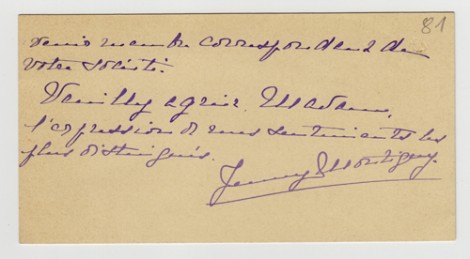 81
venir membre correspondant de
votre société.
Veuillez agréer, Madame,
l'expression de mes sentiments les
plus distingués.
Jenny Montigny.